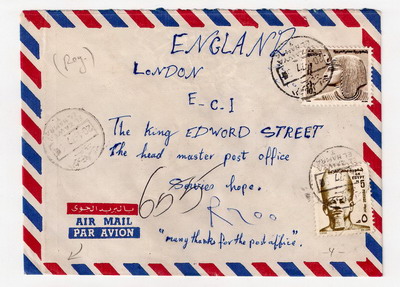 (Roy.)
ENGLAND
LONDON
E-C.I
The King EDWORD STREET
The head master post office
Services hope.
R 200
"many thanks for the post office".
بالبريد الجوى
AIR MAIL
PAR AVION
EGYPT
- 4 -